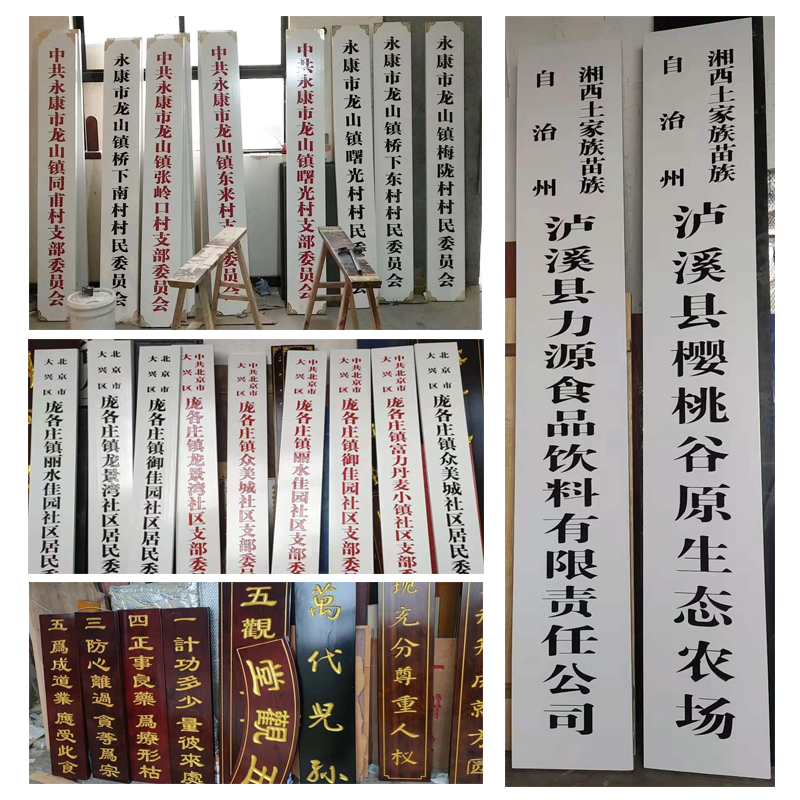 中共永康市龙山镇同甫村支部委员会
永康市龙山镇桥下南村村民委员会
中共永康市龙山镇张岭口村支部委员会
中共永康市龙山镇东来村支
员会
中共永康市龙山镇曙光村支部委员会
永康市龙山镇曙光村村民委
永康市龙山镇桥下东村村民委员会
永康市龙山镇梅陇村村民委员会
北京市
大兴区
庞各庄镇丽水佳园社区居民委
北京市
大兴区
庞各庄镇龙景湾社区居民委
北京市
大兴区
庞各庄镇御佳园社区居民委
中共北京市
大兴区
庞各庄镇龙景湾社区支部委
中共北京市
大兴区
庞各庄镇众美城社区支部委
中共北京市
大兴区
庞各庄镇丽水佳园社区支部
中共北京市
大兴区
庞各庄镇御佳园社区支部委
中共北京市
大兴区
庞各庄镇富力丹麦小镇社区支部
北京市
大兴区
庞各庄镇众美城社区居民委
五 爲成道業 應受此食
三 防心離過 貪等爲宗
四 正事良藥 爲療形枯
一 計功多少 量彼來處
五觀
堂觀五
萬代兒孫
现充分尊重人权
湘西土家族苗族
自治州
泸溪县力源食品饮料有限责任公司
湘西土家族苗族
自治州
泸溪县樱桃谷原生态农场